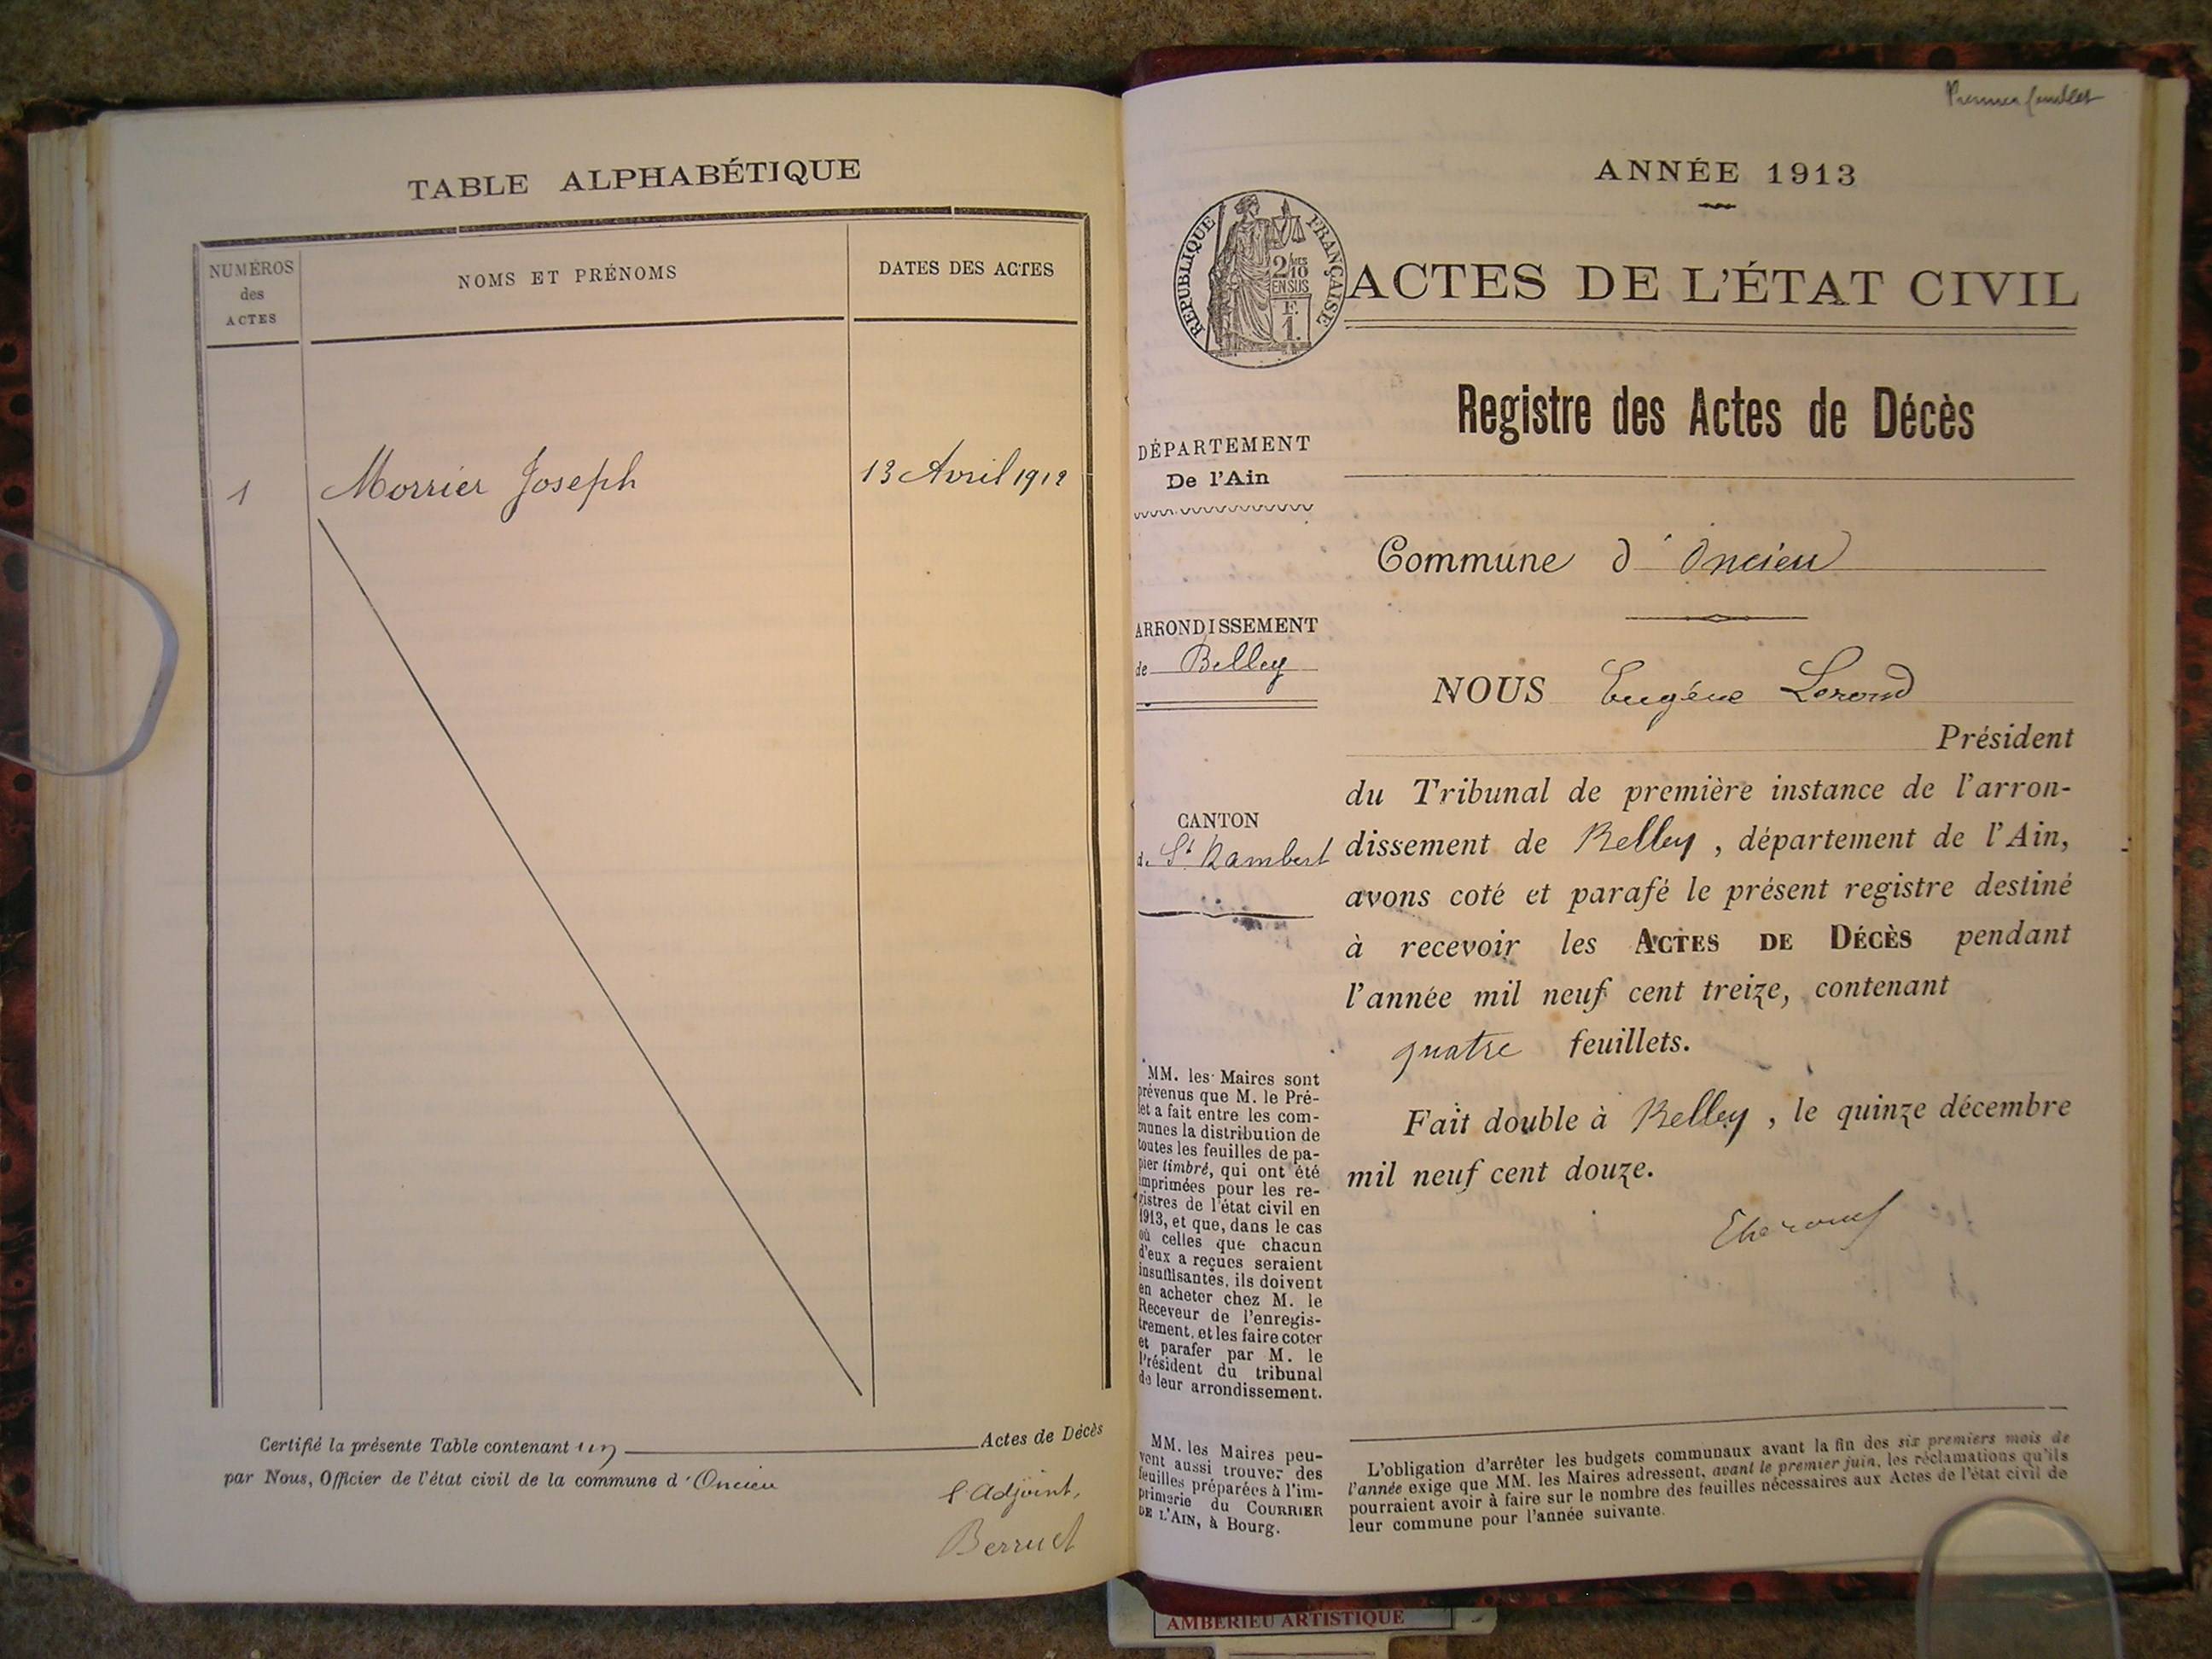 TABLE ALPHABÉTIQUE
NUMÉROS
des
ACTES
NOMS ET PRÉNOMS
DATES DES ACTES
1 Morrier Joseph 13 Avril 1912
Certifié la présente Table contenant un Actes de Décès
par Nous, Officier de l'état civil de la commune d'Oncieu
l'adjoint,
Berruet
Premier feuillet
ANNÉE 1913
RÉPUBLIQUE FRANÇAISE
2/10
EN SUS
F.
1.
ACTES DE L'ÉTAT CIVIL
Registre des Actes de Décès
DÉPARTEMENT
De l'Ain
Commune d'Oncieu
ARRONDISSEMENT
de Belley
NOUS Eugène
Président
du Tribunal de première instance de l'arron-
CANTON
de St Rambert
dissement de Belley, département de l'Ain,
avons coté et parafé le présent registre destiné
à recevoir les ACTES DE DÉCÈS pendant
l'année mil neuf cent treize, contenant
quatre feuillets.
Fait double à Belley, le quinze décembre
mil neuf cent douze.
MM. les Maires sont
prévenus que M. le Pré-
fet a fait entre les com-
munes la distribution de
toutes les feuilles de pa-
pier timbré, qui ont été
imprimées pour les re-
gistres de l'état civil en
1913, et que, dans le cas
où celles que chacun
d'eux a reçues seraient
insuffisantes, ils doivent
en acheter chez M. le
Receveur de l'enregis-
trement, et les faire coter
et parafer par M. le
Président du tribunal
de leur arrondissement.
MM. les Maires peu-
vent aussi trouver des
feuilles préparées à l'im-
primerie du COURRIER
DE L'AIN, à Bourg.
L'obligation d'arrêter les budgets communaux avant la fin des six premiers mois de
l'année exige que MM. les Maires adressent, avant le premier juin, les réclamations qu'ils
pourraient avoir à faire sur le nombre des feuilles nécessaires aux Actes de l'état civil de
leur commune pour l'année suivante.
AMBERIEU ARTISTIQUE